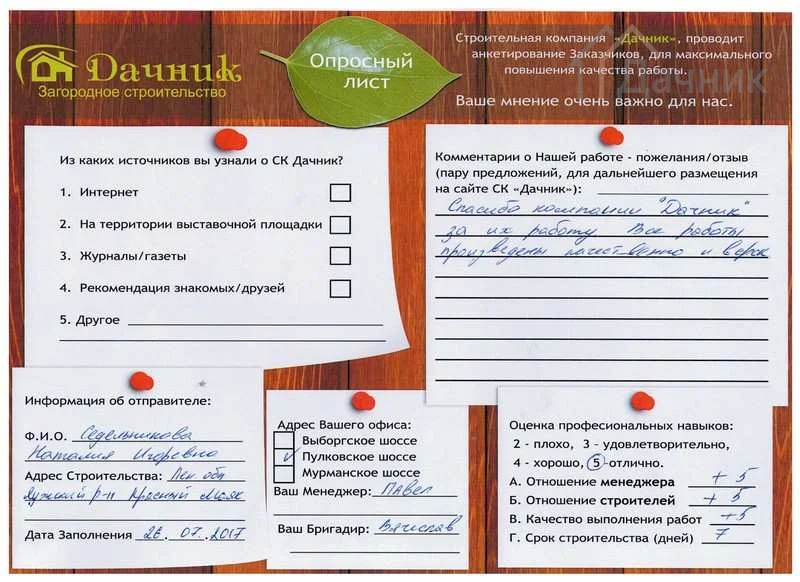 Дачник
Загородное строительство
Опросный
лист
Строительная компания «Дачник», проводит
анкетирование Заказчиков, для максимального
повышения качества работы.
Ваше мнение очень важно для нас.
Дачник
Из каких источников вы узнали о СК Дачник?
1. Интернет
2. На территории выставочной площадки
3. Журналы/газеты
4. Рекомендация знакомых/друзей
5. Другое
Комментарии о Нашей работе - пожелания/отзыв
(пару предложений, для дальнейшего размещения
на сайте СК «Дачник»):
Спасибо компании "Дачник"
за их работу Все работы
произведены качественно и в срок
Информация об отправителе:
Ф.И.О. Седельникова
Наталия Игоревна
Адрес Строительства: Лен обл
Лужский р-н Красный Маяк
Дата Заполнения 26.07.2017
Адрес Вашего офиса:
Выборгское шоссе
V Пулковское шоссе
Мурманское шоссе
Ваш Менеджер: Павел
Ваш Бригадир: Вячеслав
Оценка професиональных навыков:
2 - плохо, 3 - удовлетворительно,
4 - хорошо, 5 -отлично.
А. Отношение менеджера +5
Б. Отношение строителей +5
В. Качество выполнения работ +5
Г. Срок строительства (дней) 7